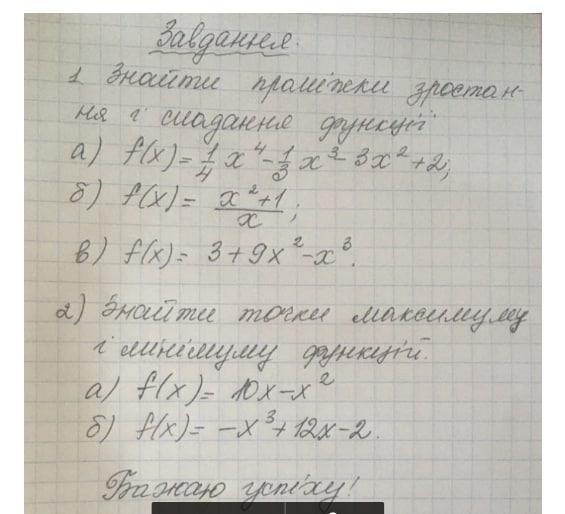 Завдання.
1 Знайти проміжки зростан-
ня і спадання функції
а) f(x) = 1/4 x⁴ - 1/3 x³ - 3x² + 2;
б) f(x) = (x² + 1)/x;
в) f(x) = 3 + 9x² - x³.
2) Знайти точки максимуму
і мінімуму функцій.
а) f(x) = 10x - x²
б) f(x) = -x³ + 12x - 2.
Бажаю успіху!